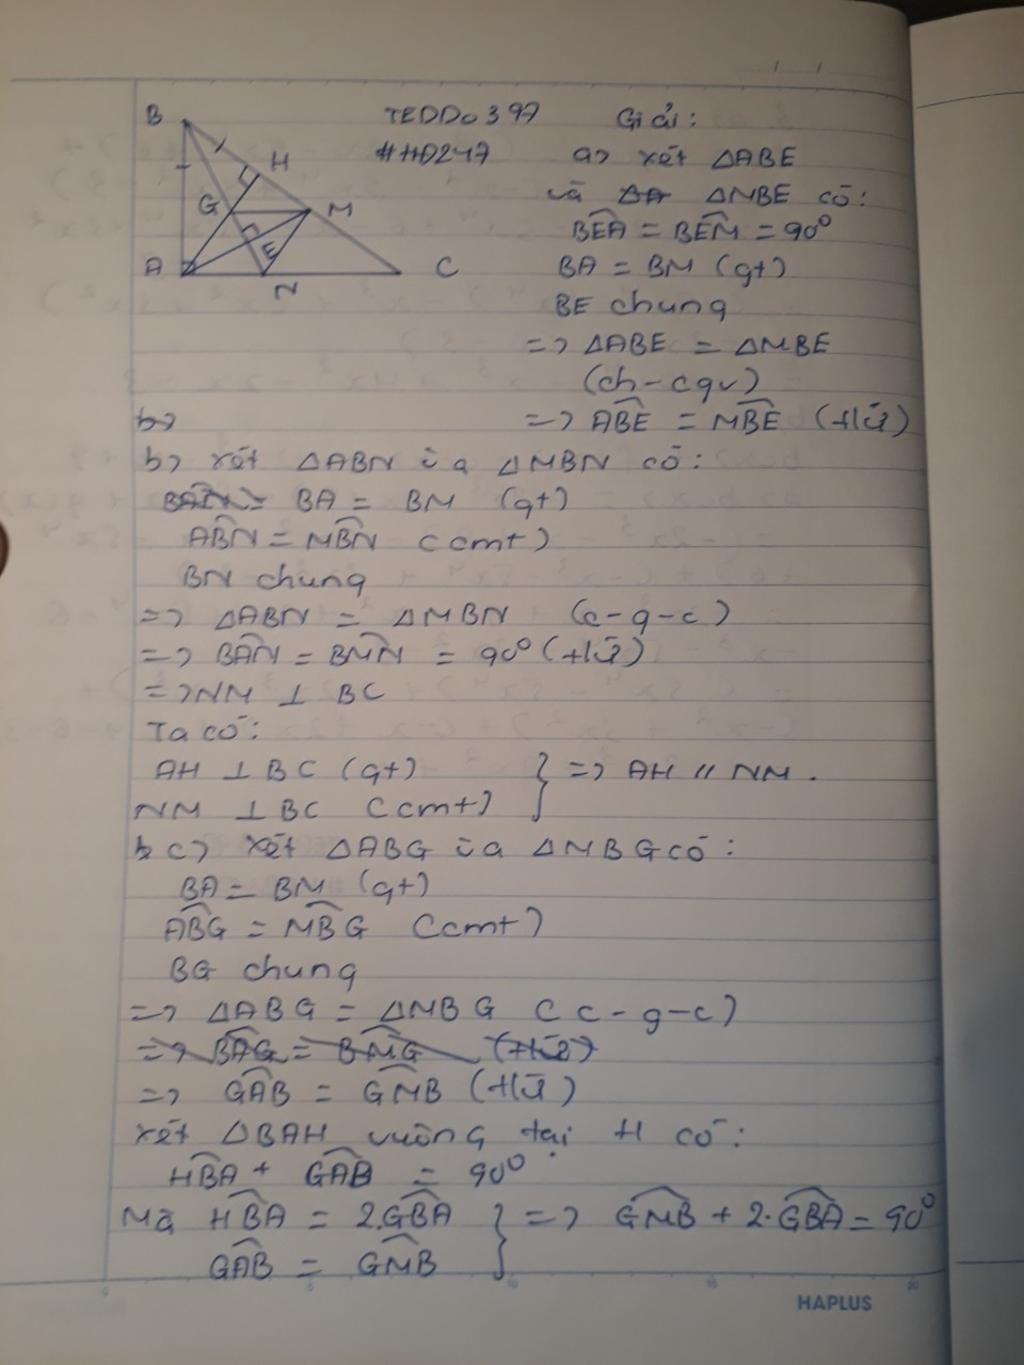 B
H
G
M
E
A
N
C
TEDDo397
#HD247
Giải:
a> xét ΔABE
và ΔNBE có:
BEA = BEM = 90°
BA = BM (gt)
BE chung
=> ΔABE = ΔMBE
(ch-cgv)
b>
=> ABE = MBE (tlứ)
b> xét ΔABN và ΔMBN có:
BA = BM (gt)
ABN = MBN (cmt)
BN chung
=> ΔABN = ΔMBN (c-g-c)
=> BAN = BMN = 90° (tlứ)
=> NM ⊥ BC
Ta có:
AH ⊥ BC (gt)
NM ⊥ BC (cmt) } => AH // NM.
c> xét ΔABG và ΔMBG có:
BA = BM (gt)
ABG = MBG (cmt)
BG chung
=> ΔABG = ΔMBG (c-g-c)
=> BAG = BMG (tlứ)
=> GAB = GMB (tlứ)
xét ΔBAH vuông tại H có:
HBA + GAB = 90°
Mà HBA = 2.GBA
GAB = GMB } => GMB + 2.GBA = 90°
HAPLUS